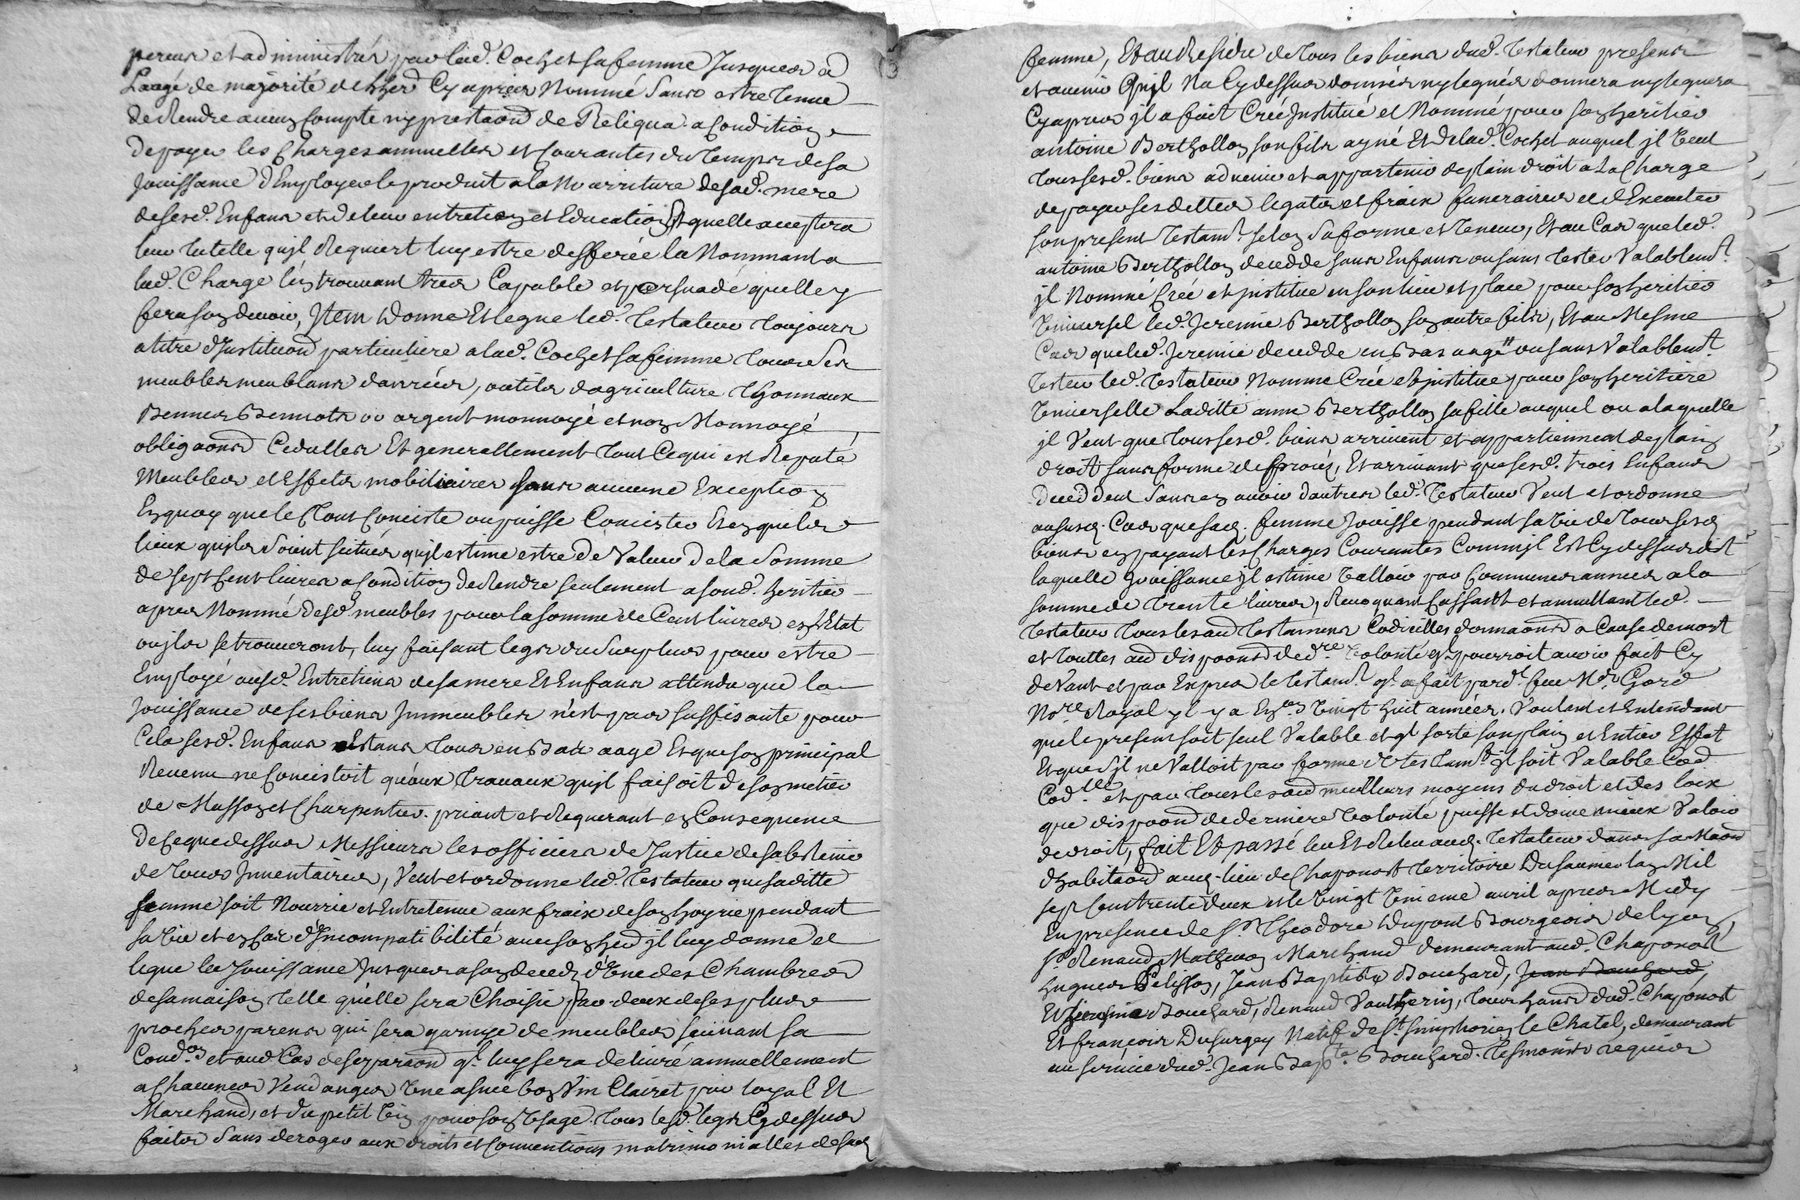 perçus et administrés par lad. Cochet sa femme Jusques a
Laagé de majorité de lher Cy apres Nommé Sans estre Tenue
de Rendre aucun Compte ny prestaon de Reliqua a Condition
De payer les Charges annuelles et Courantes du Temps de sa
Jouissance d'Employer le produit a la Nourriture de sad. mere
de sesd. Enfans et de leur entretien et Education Et quelle acceptera
leur tutelle quil Requiert luy estre defferée la Nommant a
lad. Charge les trouvant tres Capable et persuadé quelle y
fera son devoir, Item Donne Et legue led. Testateur toujours
a titre d'Instituon particuliere a lad. Cochet sa femme tous Ses
meubles meublans danrées, outils dagriculture Thonnaux
Bennes Bennots or argent monnoyé et non Monnoyé
obligaons Cedulles Et generallement tout Ce qui est Reputé
Meubles et Effets mobiliaires Sans aucune Exception
En quoy que le tout Conciste ou puisse Concister Et en quels
lieux quils Soient scitués quil estime estre de Valeur de la Somme
de sept Cent livres a Condition de Rendre seulement a sond. heritier
apres Nommé desd. meubles pour la somme de Cent livres en l'Etat
ou ils se trouveront, luy faisant legs du Surplus pour estre
Employé ausd. Entretiens de sa mere Et Enfans attendu que la
Jouissance de ses biens Immeubles n'est pas suffisante pour
Cela sesd. Enfans Estans tous en Bas aage Et que son principal
Revenu ne Concistoit qu'aux Travaux quil faisoit de son metier
de Masson et Charpentier. priant et Requerant en Consequence
De Ce que dessus Messieurs les officiers de Justice de sabstenir
de tous Inventaires, Veut et ordonne led. Testateur que saditte
femme soit Nourrie et Entretenue aux fraix de son hoyrie pendant
sa Vie et en Cas d'Incompatibilité avec son her. il luy donne et
legue la Jouissance Jusques a son deceds d'Une des Chambres
de sa maison telle quelle sera Choisie par deux de ses plus
proches parens qui sera garnye de meubles suivant sa
Condon et aud. Cas de separaon ql luy sera delivré annuellement
a Chacunes Vendanges Une asnée bon Vin Clairet pur loyal Et
Marchand, et du petit Vin pour son Usage. Tous lesd. legs Cy dessus
faits Sans deroger aux droits et Conventions matrimonialles de sad.
femme, Et au Residu de tous les biens dud. Testateur presens
et avenir Quil Na Cy dessus donnés ny legués donnera ny leguera
Cy apres il a fait Créé Institué et Nommé pour son heritier
antoine Berthollon son fils ayné Et de lad. Cochet auquel il Veut
tous sesd. biens advenir et appartenir de plain droit a La Charge
de payer ses dettes legats et fraix funeraires et d'Executer
son present Testamt. selon Sa forme et Teneur, Et au Cas que led.
antoine Berthollon decedde sans Enfans ou sans Tester Valablemt.
il Nommé Créé et Institue en son lieu et place pour son heritier
Universel led. Jeremie Berthollon son autre fils, Et au Mesme
Cas que led. Jeremie decedde en Bas aage ou sans Valablemt.
Tester led. Testateur Nomme Crée et Institue pour son heritiere
Universelle Laditte anne Berthollon sa fille auquel ou a laquelle
il Veut que tous sesd. biens arrivent et appartiennent de plain
droit sans forme de proces, Et arrivant que sesd. trois Enfans
Deceddent Sans en avoir dautres led. Testateur Veut et ordonne
aususd. Cas que sad. femme Jouisse pendant sa Vie de tous sesd.
biens en payant les Charges Courantes Comm'il Est Cy dessus dit
laquelle Jouissance il estime Valloir par Communes années a la
somme de Trente livres, Revoquant Cassant et annullant led.
Testateur tous les aud Testamens Codicilles donnaons a Cause de mort
et touttes aud dispoons de dre Volonté ql pourroit avoir fait Cy
devant et par Expres le Testamt. ql a fait pardt. feu Mr. Gord
Nore Royal y il y a Enon Vingt huit années. Voulant et Entendant
que le present soit seul Valable et ql sorte son plain et Entier Effet
Et que s'il ne Valloit par forme de Testamt. il soit Valable Cod
Codlle et par tous les aud meilleurs moyens du droit et des loix
que dispoon de derniere Volonté puisse et doive mieux Valoir
de droit, fait Et passé leu Et Releu aud. Testateur dans sa Maon
dhabitaon aud. lieu de Chaponost Territoire Du saumelan Mil
sept Cens trente deux et le Vingt Unieme avril apres Midy
En presence de Sr. Theodore Dupont Bourgeois de lyon
Sr. Renaud Mathevon Marchand demeurant aud. Chaponost
hugues Pelisson, Jean Baptiste Bouchard, Jean Bouchard,
Et Bouchard, Renaud Vautherin, tous hans dud. Chaponost
Et françois Dusurgey Natif de St. simphorien le Chatel, demeurant
au service dud. Jean Bapte. Bouchard. Tesmoins requis